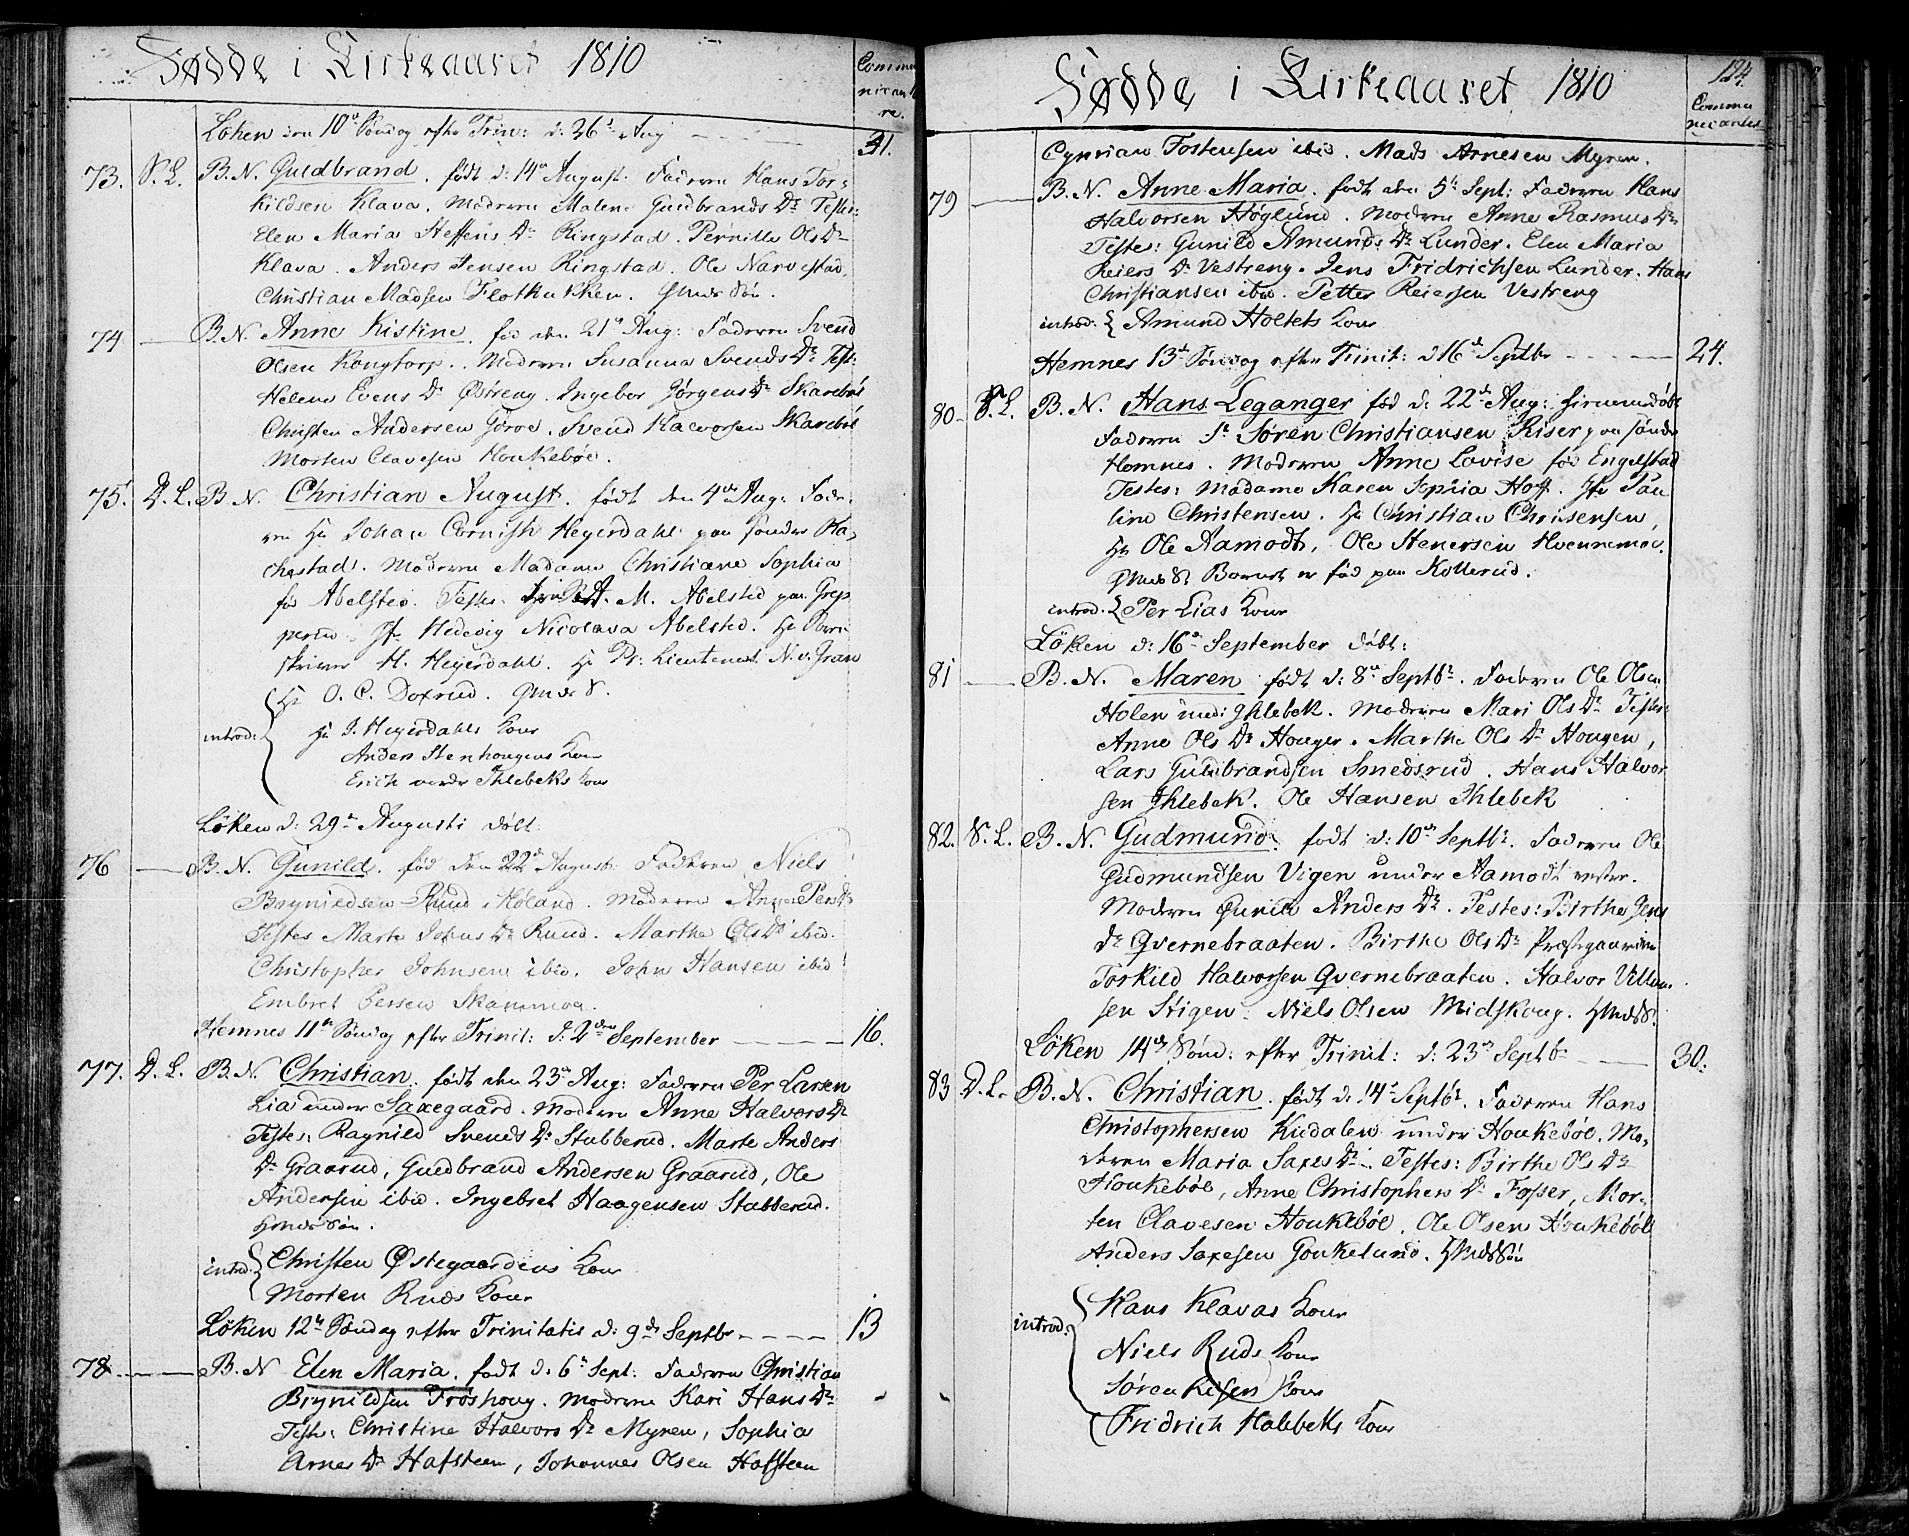 Fødde i Kirkeaaret 1810
Commu
nicant
re.
Løken den 10de Søndag efter Trin: d: 26de Aug 31.
73. S. L. B. N. Guldbrand. født d: 14de August: Faderen Hans Tor-
kildsen Klava. Moderen Malene Guldbrands Dr Testes:
Elen Maria Steffens Dr Ringstad. Pernille Ols Dr
Klava. Anders Jensen Ringstad. Ole Narvestad,
Christian Madsen Flotkukken.
74 B. N. Anne Kistine. fød den 21de Aug: Faderen Svend
Olsen Kongtorp. Moderen Susanna Svends Dr Test:
Helene Evens Dr Østreng. Ingebor Jørgens Dr Skarebøl
Christen Andersen Gorve. Svend Halvorsen Skarebøl
Morten Clavesen Houkebøe.
75. D. L. B. N. Christian August. født den 4de Aug: Fade-
ren Hr Johan Cornisch Heyerdahl paa Sønder Ha-
chestad. Moderen Madame Christiane Sophia
fød Abelsted. Testes. A. M. Abelsted paa Grep
perud. Jfr Hedevig Nicolava Abelsted. Hr Over-
skriver H. Heyerdahl. Hr Pr: Lieutenant N. v. Gran
Hr O. C. Doxrud.
introd: Hr J. Heyerdahls Kone
Anders Stenhougens Kone
Erich nordr Ihlebeks Kone
Løken d: 29de Augusti døbt:
76 B. N. Gunild. fød den 22de August. Faderen Niels
Brynildsen Ruud i Høland. Moderen Anne Pers Dr
Testes Marte Johns Dr Ruud. Marthe Ols Dr ibid.
Christopher Johnsen ibid. John Hansen ibid
Embret Persen Skammoe.
Hemnes 11te Søndag efter Trinit: d: 2den September 16.
77. D. L. B. N. Christian. født den 23de Aug: Faderen Per Larsen
Lia under Saxegaard. Moderen Anne Halvors Dr
Testes: Ragnild Svends Dr Stubberud. Marte Anders
Dr Graarud, Guldbrand Andersen Graarud, Ole
Andersen ibid. Ingebret Haagensen Stubberud.
introd: Christen Østegaardens Kone
Morten Ruds Kone
Løken 12te Søndag efter Trinitatis d: 9de Septbr 13
78. B. N Elen Maria. født d. 6te Sept: Faderen Christian
Brynildsen Froshoug. Moderen Kari Hans Dr
Testes: Christine Halvors Dr Myren, Sophia
Arnes Dr Hafsteen, Johannes Olsen Hafsteen
Fødde i Kirkeaaret 1810
124.
Commu
nicantes
Cyprian Fostensen ibid. Mads Arnesen Myren.
79 B. N. Anne Maria. født den 5te Sept: Faderen Hans
Halvorsen Høglund. Moderen Anne Rasmus Dr
Testes: Gunild Amunds Dr Lunder. Elen Maria
Reiers Dr Vestreng. Jens Fridrichsen Lunder. Hans
Christiansen ibid. Petter Reiersen Vestreng
introd: Amund Holtets Kone
Hemnes 13de Søndag efter Trinit: d 16de Septbr 24.
80. S. L. B. N. Hans Leganger fød d: 22de Aug: hiemmedøbt
Faderen Sr Søren Christiansen Riser paa sønder
Hemnes. Moderen Anne Lovise fød Engelstad
Testes: Madame Karen Sophia Hoff. Jfr Pau
line Christensen. Hr Christian Chrisensen,
Hr Ole Aamodt, Ole Stenersen Hvennemoe.
Barnet er fød paa Kollerud.
introd: Per Lias Kone
Løken d: 16de September døbt:
81 B. N. Maren født d: 8de Septbr. Faderen Ole Olsen
Holen med: Ihlebek. Moderen Mari Ols Dr Testes:
Anne Ols Dr Houger. Marthe Ols Dr Hougen,
Lars Guldbrandsen Smedsrud. Hans Halvor
sen Ihlebek. Ole Hansen Ihlebek
82. S. L. B. N. Gudmund. født d: 10de Septbr. Faderen Ole
Gudmundsen Vigen under Aamodt vestre.
Moderen Gunild Anders Dr. Testes: Birthe Jens
Dr Qvernebraaten. Birthe Ols Dr
Torkild Halvorsen Qvernebraaten. Halvor Villum
sen Stigen. Niels Olsen Midskoug.
Løken 14de Sønd: efter Trinit: d: 23de Septbr 30.
83 D. L. B. N. Christian. født d: 14de Septbr. Faderen Hans
Christophersen Kudalen under Houkebøe. Mo-
deren Maria Saxes Dr. Testes: Birthe Ols Dr
Houkebøe, Anne Christophers Dr Fosser, Mor-
ten Clavesen Houkebøe. Ole Olsen Houkebøl
Anders Saxesen Goukelund.
introd: Hans Klavas Kone
Niels Ruds Kone
Søren Risers Kone
Fridrich Halebeks Kone